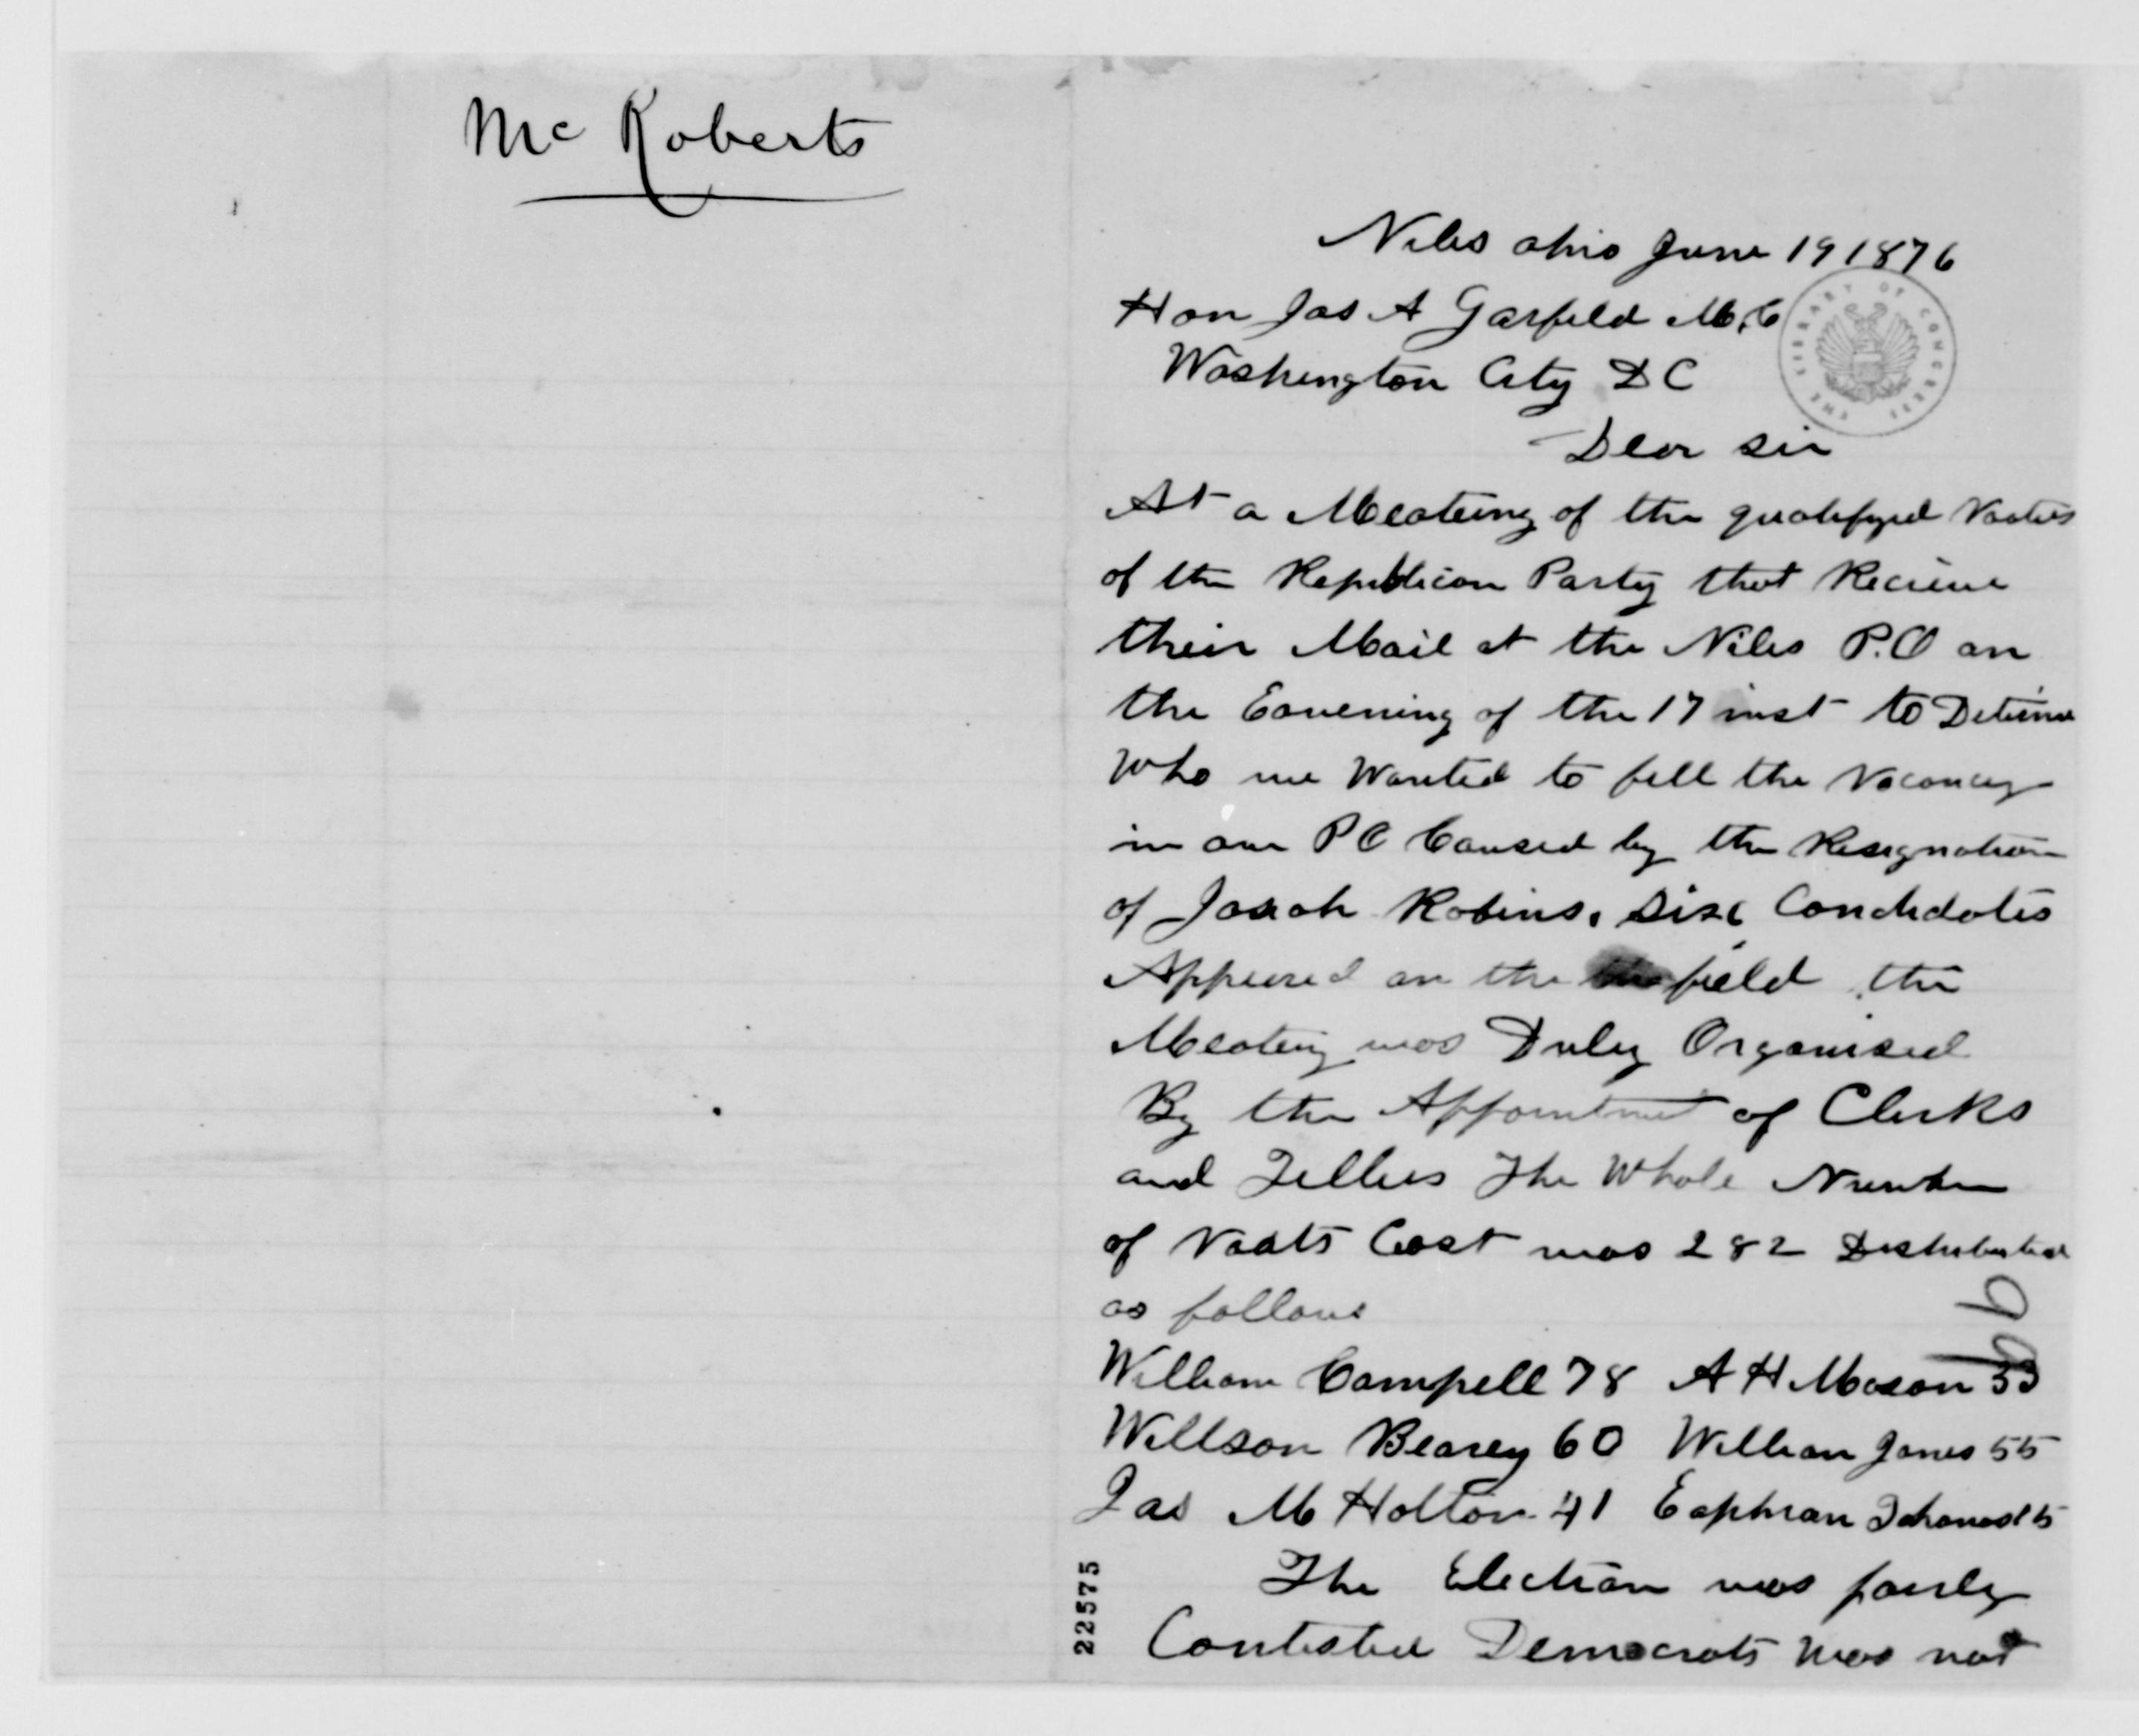 Mc Roberts
Niles ohio June 19 1876
Hon Jas A Garfield M.C
Washington City D C
Dear Sir
At a Meateing of the qualifyed Vooters
of the Republican Party that Recieve
their Mail at the Niles P.O on
the Eavening of the 17 inst to Determe
Who we Wanted to fill the Vacancy
in our P O Caused by the Resignation
of Josiah Robins. Six Candidates
Appeared on the field the
Meating was Duly Organised
By the Appointment of Clerks
and Tellers The Whole Number
of Voats Cast was 282 Distributed
as follows
William Campell 78 A H Mason 33
Willson Bearey 60 William Jones 55
Jas M Holton 41 Eaphram 15
The Election was fairly
Contested Democrats was not
22575
THE LIBRARY OF CONGRESS